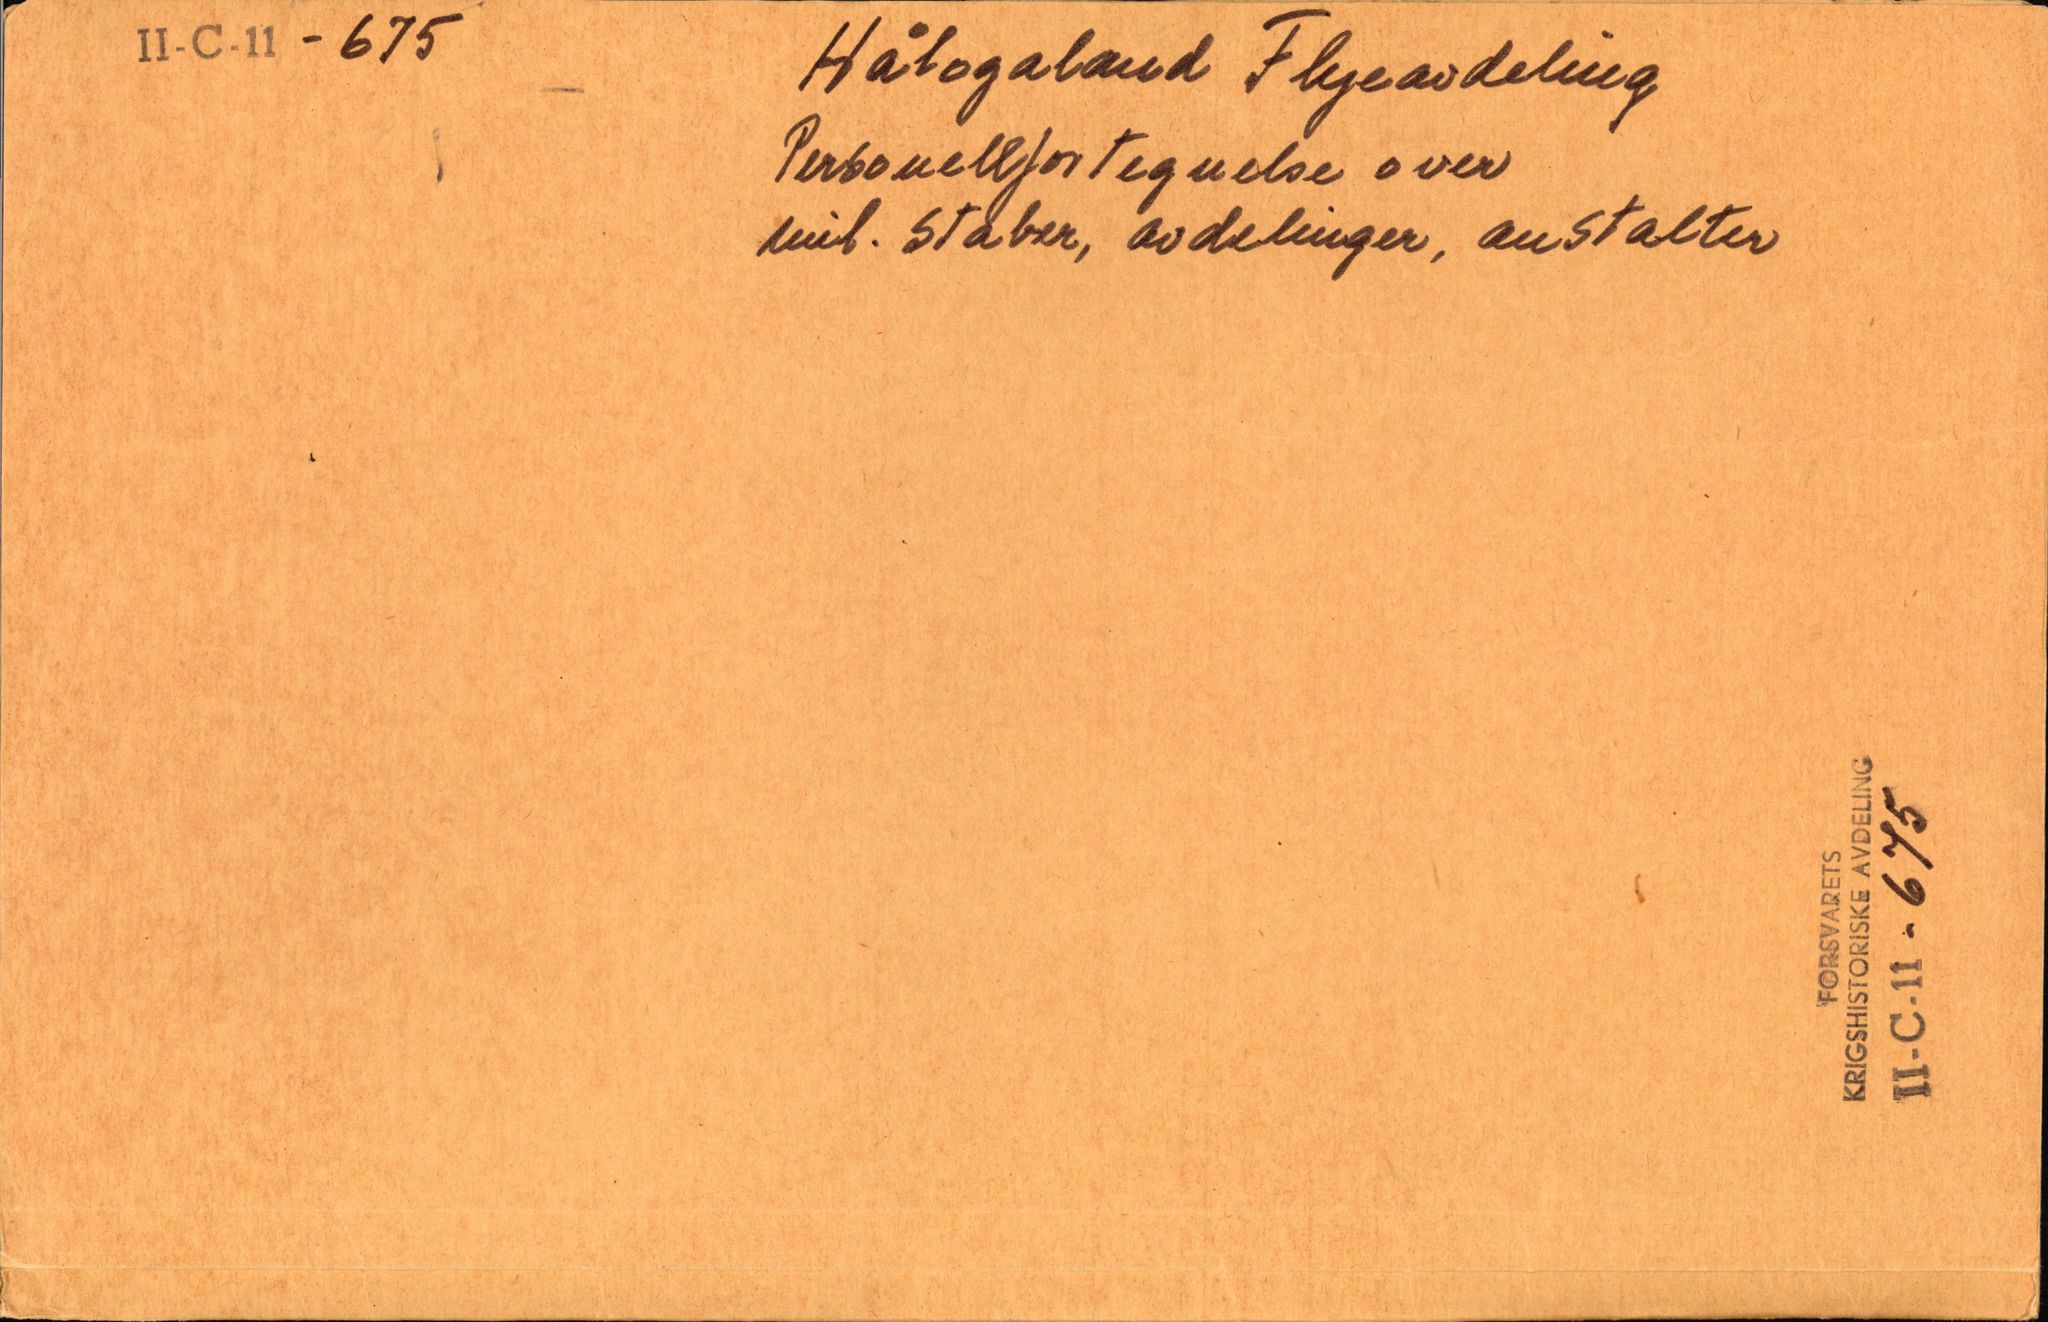 II-C-11 - 675
Hålogaland Flyeavdeling
Personellfortegnelse over
mil. staber, avdelinger, anstalter
FORSVARETS
KRIGSHISTORISKE AVDELING
II-C-11 - 675